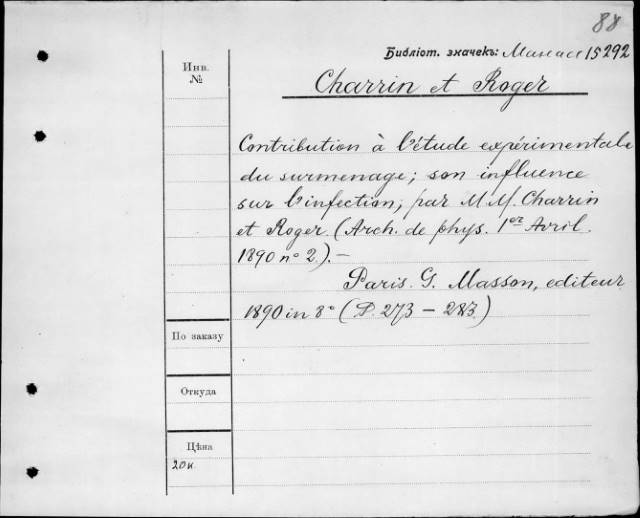 88
Библіот. значекъ: Манасс 15292
Инв.
№
Charrin et Roger
Contribution à l'étude expérimentale
du surmenage; son influence
sur l'infection; par M.M. Charrin
et Roger. (Arch. de phys. 1er Avril.
1890 n° 2). —
Paris. G. Masson, editeur
1890 in 8° (P. 273 – 283.)
По заказу
Откуда
Цѣна
20к